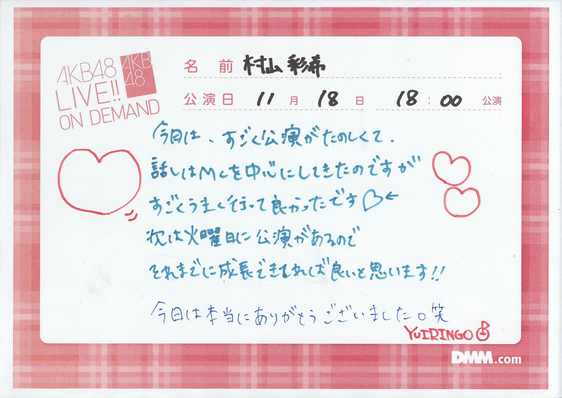 AKB48
LIVE!!
ON DEMAND
AKB
48
名 前 村山 彩希
公演日 11 月 18 日 18 : 00 公演
今日は、すごく公演がたのしくて、
話しはMCを中心にしてきたのですが
すごくうまく行って良かったです♡←
次は火曜日に公演があるので
それまでに成長できてれば良いと思います!!
今日は本当にありがとうございました。笑
YUIRINGO
DMM.com